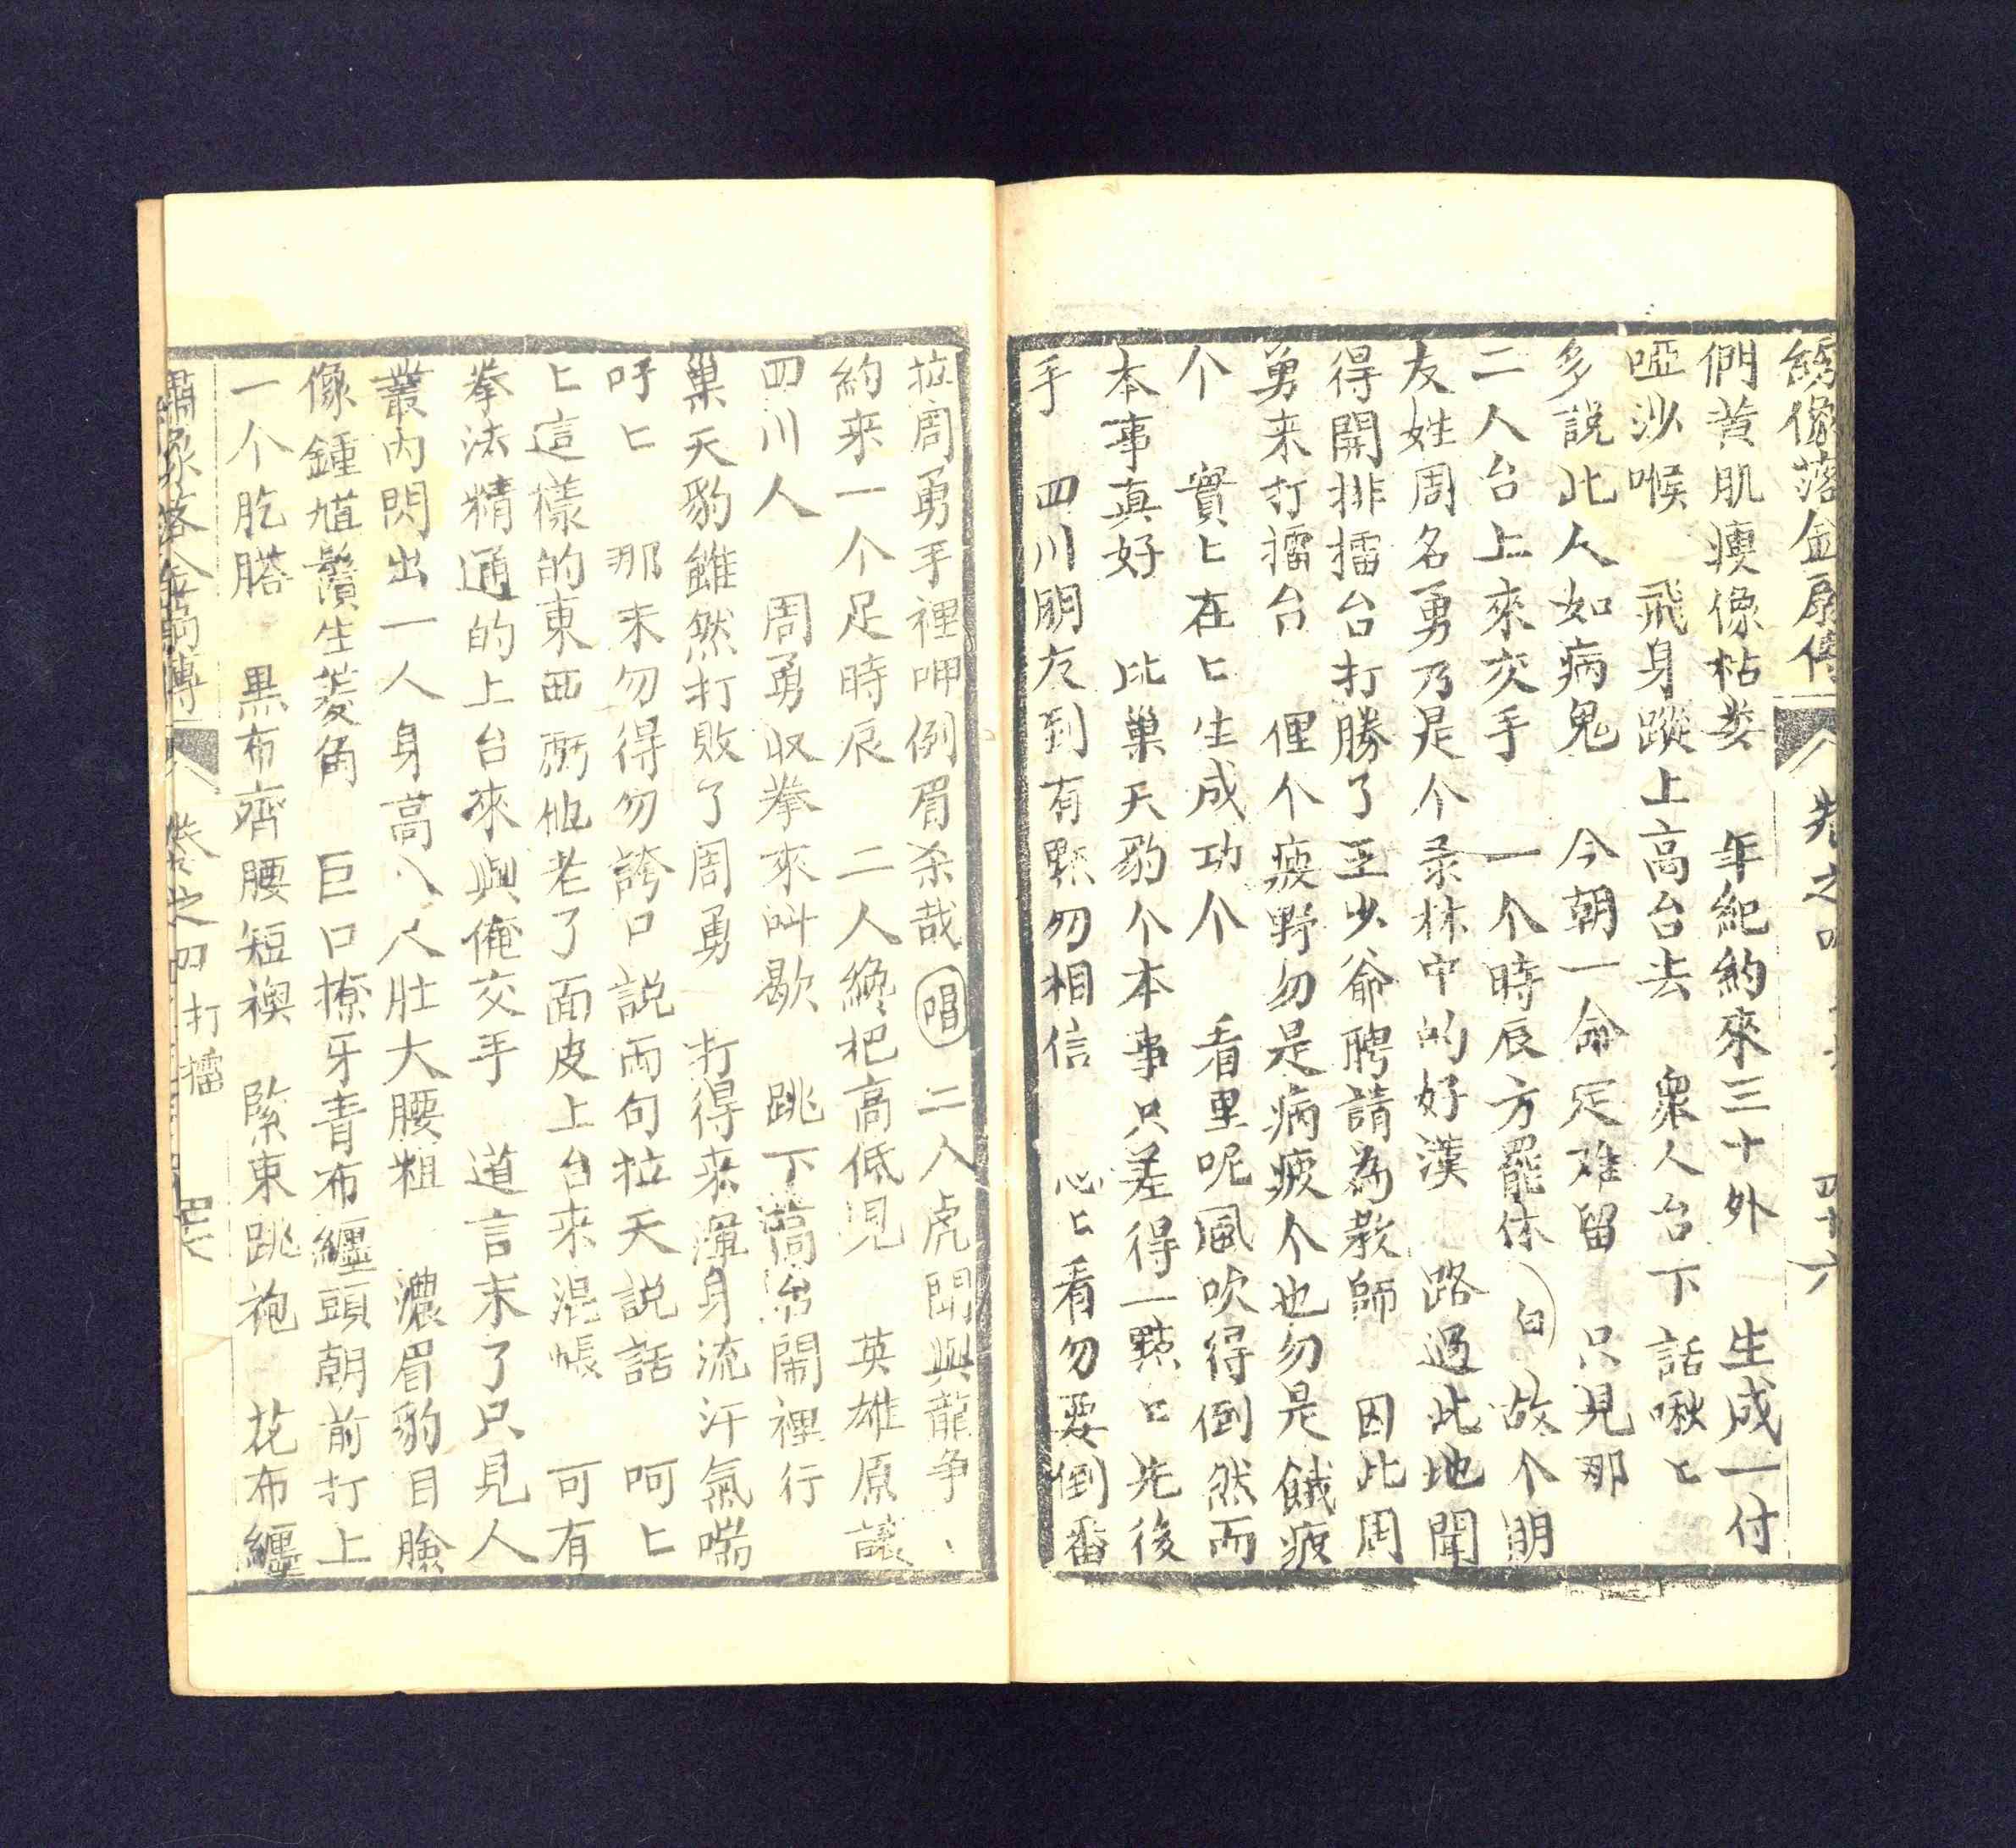 綉像落金扇傳 卷之四 四十六
們黄肌瘦像枯娄 年紀約來三十外 生成一付
啞沙喉 飛身蹤上高台去 衆人台下話啾匕
多説此人如病鬼 今朝一命定难留 只見那
二人台上來交手 一个時辰方罷休 白 故个朋
友姓周名勇乃是个录林中的好漢 路過此地聞
得開排擂台打勝了王少爺聘請為教師 因此周
勇来打擂台 俚个疲野勿是病疲个也勿是餓疲
个 實匕在匕生成功个 看里呢風吹得倒然而
本事真好 比巢天豹个本事只差得一點匕先後
手 四川朋友到有點勿相信 心上看勿要倒番
拉周勇手裡呷例眉杀哉 唱 二人虎鬪與龍争
約来一个足時辰 二人終把高低見 英雄原讓
四川人 周勇収拳來呌歇 跳下高台鬧裡行
巢天豹雖然打敗了周勇 打得来渾身流汗氣喘
吁匕 那末勿得勿誇口説兩句拉天説話 呵匕
匕這樣的東西虧他老了面皮上台来混帳 可有
拳法精通的上台來與俺交手 道言未了只見人
叢內閃出一人身高八尺壯大腰粗 濃眉豹目臉
像鍾馗鬚生菱角 巨口撩牙青布纏頭朝前打上
一个肐膪 黒布齊腰短襖 緊束跳袍 花布纏
綉像落金扇傳 卷之四 打擂 四十七